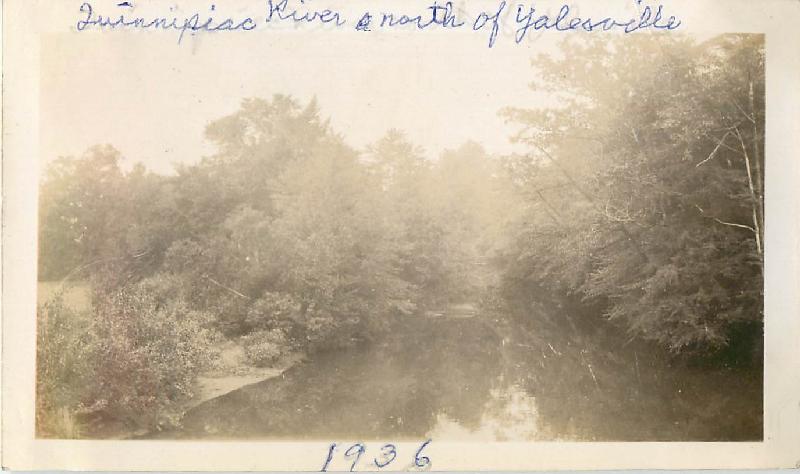 Quinnipiac River north of Yalesville
1936